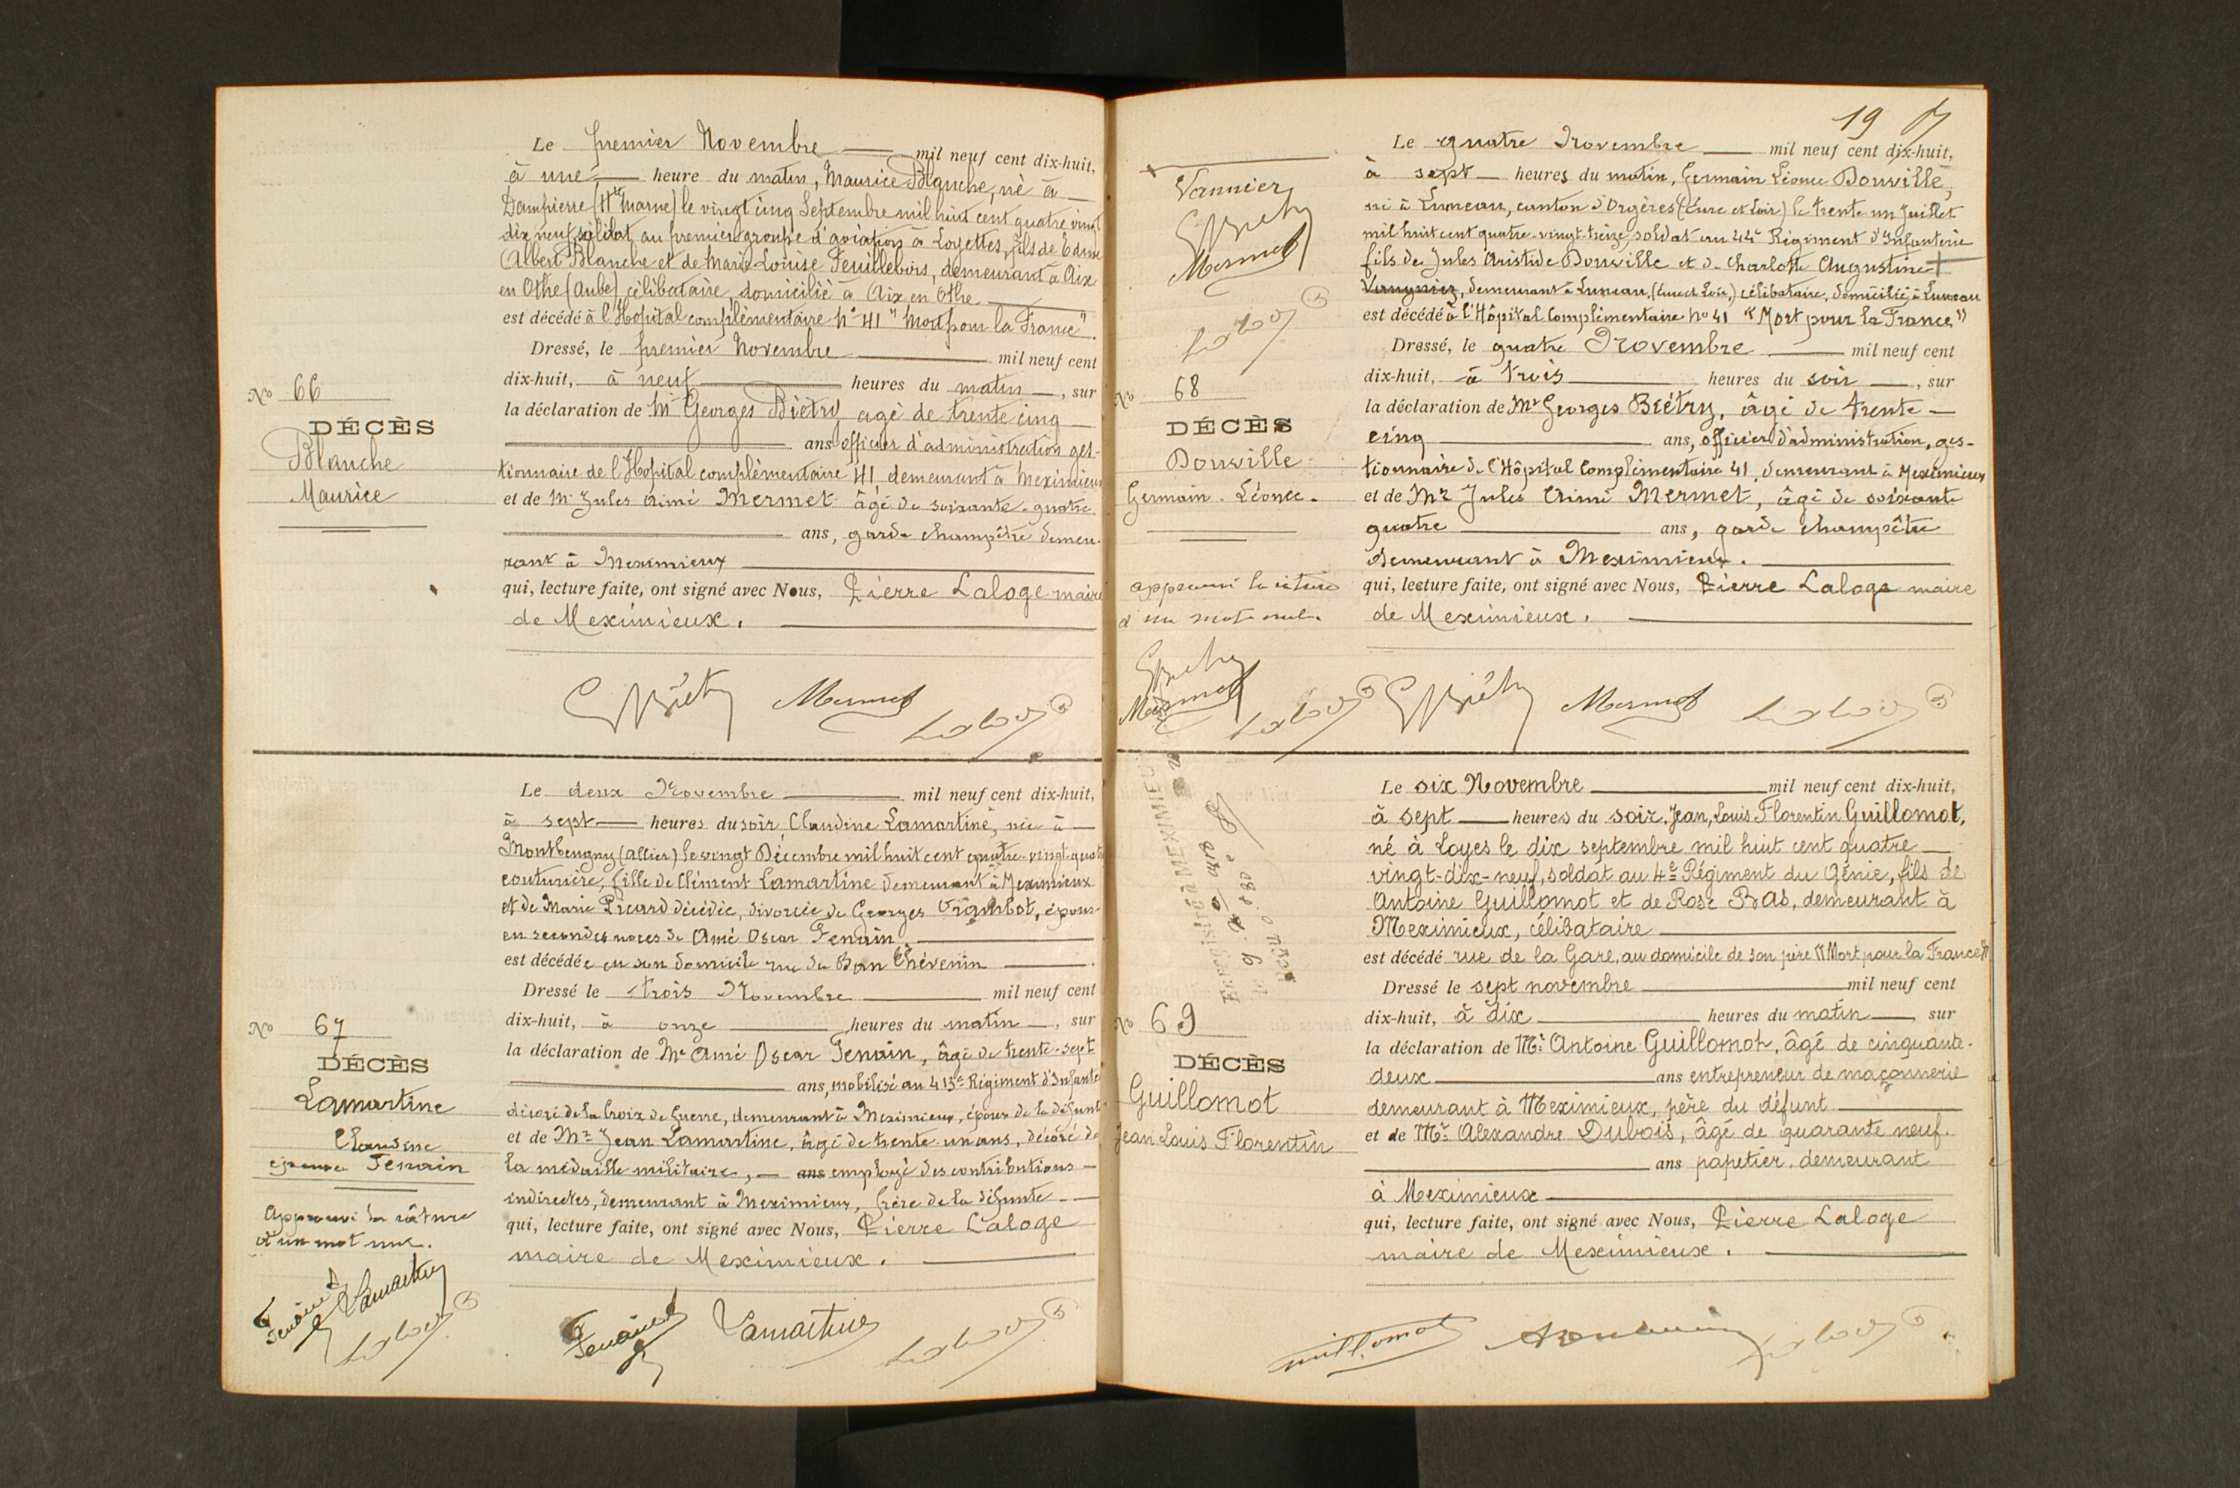 Le premier Novembre mil neuf cent dix-huit,
à une heure du matin, Maurice Blanche, né à
Dampierre (Hte Marne) le vingt cinq Septembre mil huit cent quatre vingt
dix neuf, soldat au premier groupe d'aviation à Loyettes, fils de Edme
Albert Blanche et de Marie-Louise Feuillebois, demeurant à Aix
en Othe (Aube) célibataire, domicilié à Aix en Othe
est décédé à l'Hopital complémentaire n° 41 "Mort pour la France".
Dressé, le premier Novembre mil neuf cent
dix-huit, à neuf heures du matin, sur
la déclaration de Mr Georges Biétry agé de trente cinq
ans officier d'administration ges-
tionnaire de l'Hopital complémentaire 41, demeurant à Meximieux
et de Mr Jules Aimé Mermet âgé de soixante-quatre
ans, garde champêtre demeu-
rant à Meximieux
qui, lecture faite, ont signé avec Nous, Pierre Laloge maire
de Meximieux.
No 66
DÉCÈS
Blanche
Maurice
GBiétry Mermet Laloge
Le deux Novembre mil neuf cent dix-huit,
à sept heures du soir Claudine Lamartine, née à
Montbeugny (Allier) le vingt Décembre mil huit cent quatre-vingt-quatre
couturière, fille de Clément Lamartine demeurant à Meximieux
et de Marie Picard décédée, divorcée de Georges épouse
en secondes noces de Amé Oscar Fenain.
est décédée en son domicile rue du Bon Thévenin
Dressé le trois Novembre mil neuf cent
dix-huit, à onze heures du matin, sur
la déclaration de Mr Amé Oscar Fenain, âgé de trente-sept
ans, mobilisé au 413e Régiment d'Infanterie
décoré de la Croix de Guerre, demeurant à Meximieux, époux de la défunte
et de Mr Jean Lamartine, âgé de trente-un ans, décoré de
la médaille militaire, ans employé des contributions
indirectes, demeurant à Meximieux, frère de la défunte
qui, lecture faite, ont signé avec Nous, Pierre Laloge
maire de Meximieux.
No 67
DÉCÈS
Lamartine
Claudine
épouse Fenain
Approuvé la râture
d'un mot nul.
Fenain Lamartine
Laloge
Fenain Lamartine Laloge
19
Vannier
GBiétry
Mermet
Laloge
Le quatre Novembre mil neuf cent dix-huit,
à sept heures du matin, Germain Léonce Douville,
né à Lumeau, canton d'Orgères (Eure et Loir) le trente un Juillet
mil huit cent quatre-vingt-treize, soldat au 44e Régiment d'Infanterie
fils de Jules Aristide Douville et de Charlotte Augustine +
demeurant à Lumeau, (Eure et Loir,) célibataire, domicilié à Lumeau
est décédé à l'Hôpital Complémentaire No 41 "Mort pour la France"
Dressé, le quatre Novembre mil neuf cent
dix-huit, à trois heures du soir, sur
la déclaration de Mr Georges Biétry, âgé de trente-
cinq ans, officier d'administration, ges-
tionnaire de l'Hôpital Complémentaire 41, demeurant à Meximieux
et de Mr Jules Aimé Mermet, âgé de soixante
quatre ans, garde champêtre
demeurant à Meximieux.
qui, lecture faite, ont signé avec Nous, Pierre Laloge maire
de Meximieux.
No 68
DÉCÈS
Douville
Germain-Léonce.
approuvé la râture
d'un mot nul.
GBiétry
Mermet Laloge
GBiétry Mermet Laloge
Le six Novembre mil neuf cent dix-huit,
à sept heures du soir, Jean, Louis Florentin Guillomot,
né à Loyes le dix septembre mil huit cent quatre
vingt-dix-neuf, soldat au 4e Régiment du Génie, fils de
Antoine Guillomot et de Rose Bas, demeurant à
Meximieux, célibataire
est décédé rue de la Gare, au domicile de son père "Mort pour la France"
Dressé le sept novembre mil neuf cent
dix-huit, à dix heures du matin, sur
la déclaration de Mr Antoine Guillomot, âgé de cinquante-
deux ans entrepreneur de maçonnerie
demeurant à Meximieux, père du défunt
et de Mr Alexandre Dubois, âgé de quarante neuf.
ans papetier. demeurant
à Meximieux
qui, lecture faite, ont signé avec Nous, Pierre Laloge
maire de Meximieux.
No 69
DÉCÈS
Guillomot
Jean Louis Florentin
Enregistré à MEXIMIEUX
Guillomot Laloge